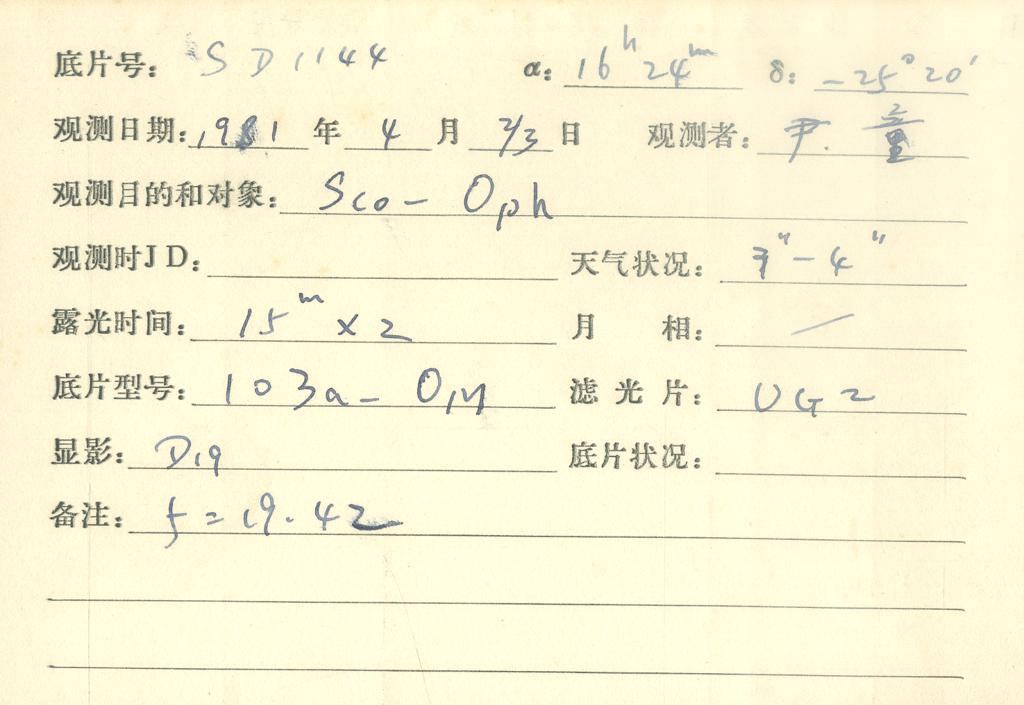 底片号: SD1144 α: 16h 24m δ: -25°20′
观测日期: 1981 年 4 月 2/3 日 观测者: 尹. 童
观测目的和对象: Sco- Oph
观测时JD: 天气状况: 3″-4″
露光时间: 15m×2 月 相: /
底片型号: 103a-O, 滤光片: UG2
显影: D19 底片状况:
备注: f=19.42